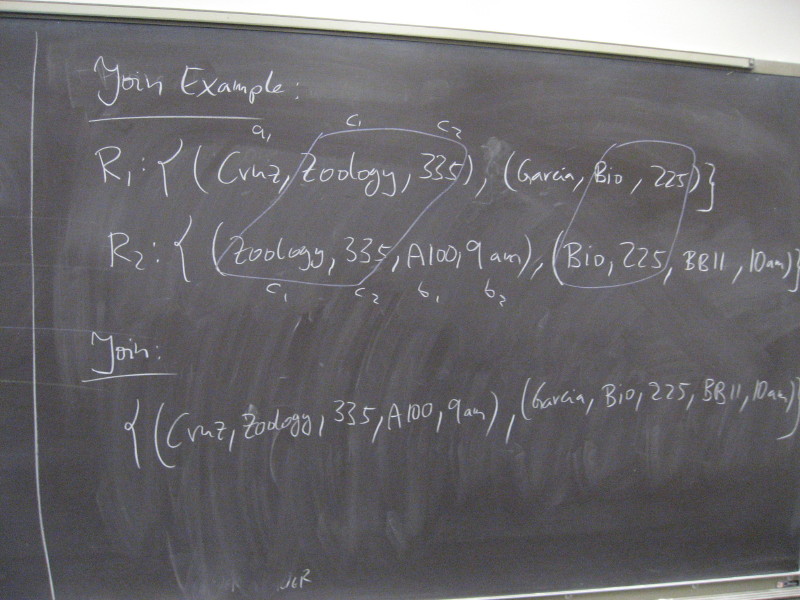 Join Example:
a₁ c₁ c₂
R₁: { (Cruz, Zoology, 335), (Garcia, Bio, 225)}
R₂: { (Zoology, 335, A100, 9am), (Bio, 225, BB11, 10am)}
c₁ c₂ b₁ b₂
Join:
{(Cruz, Zoology, 335, A100, 9am), (Garcia, Bio, 225, BB11, 10am)}